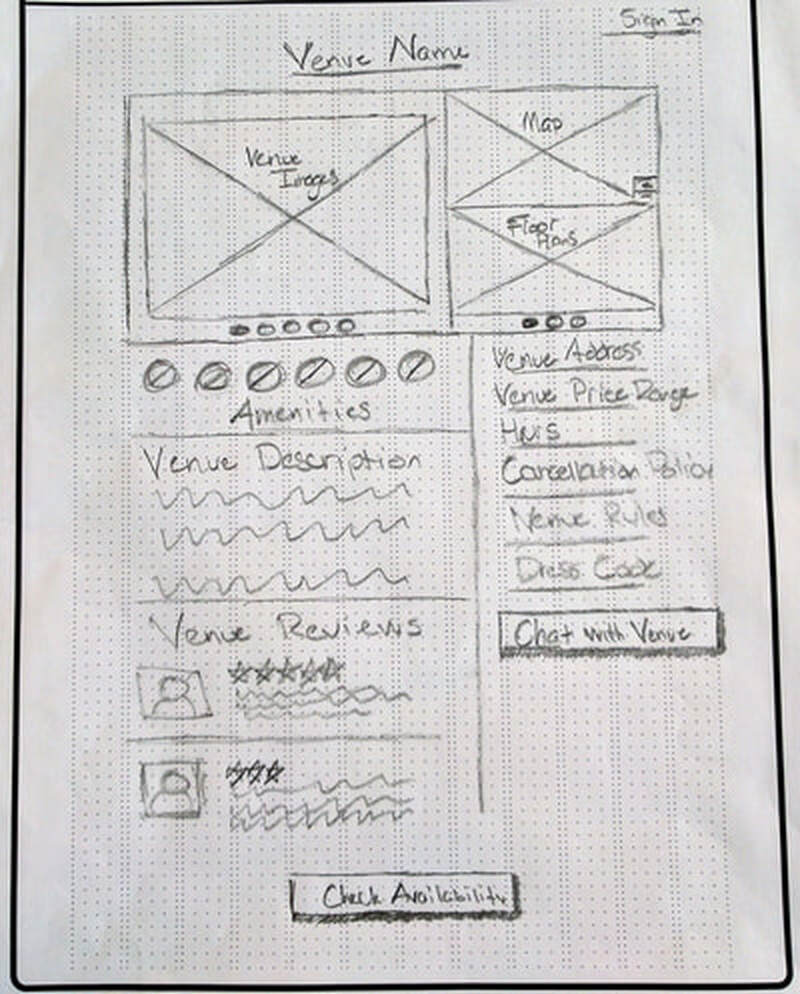 Sign In
Venue Name
Venue
Images
Map
Floor
Plans
Amenities
Venue Description
Venue Reviews
Venue Address
Venue Price Range
Cancellation Policy
Venue Rules
Dress Code
Chat with Venue
Check Availability